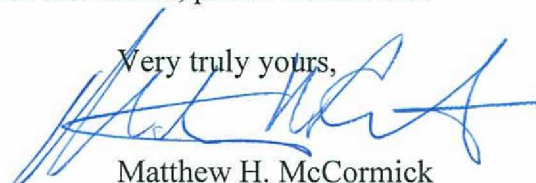 Very truly yours,
Matthew H. McCormick